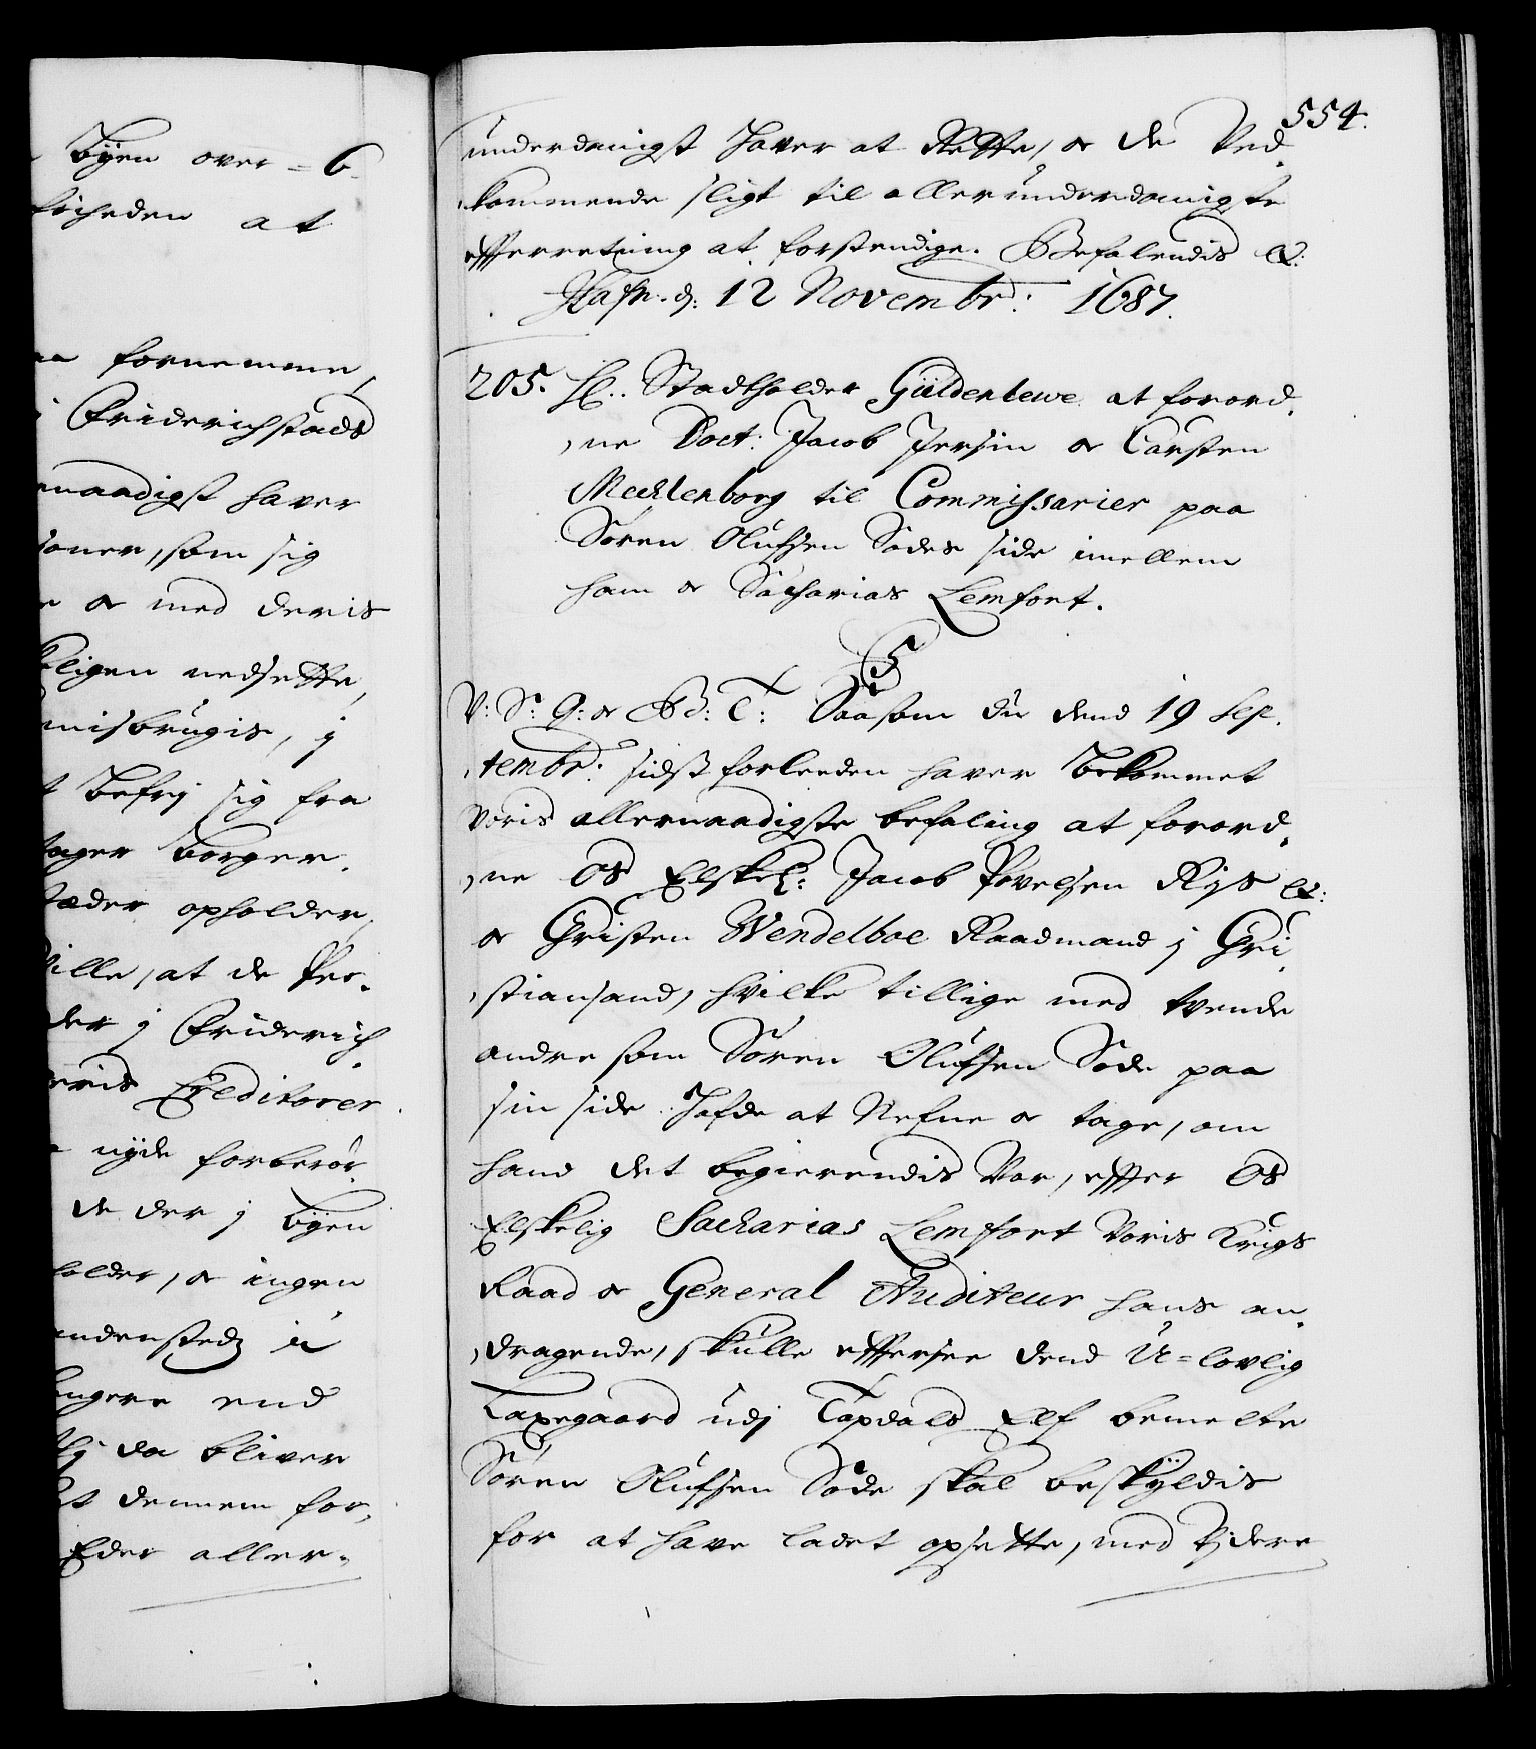 Byen over = 6
at
fornemme,
Friderichstads
naadigst haver
ioner, som sig
e or med deris
ligen nedsette,
misbrugis, j
t befrj sig fra
tager borger.
stæder opholder,
ville, at de Per-
der j Friderich
eris Creditorer
nyde forberør
de der j Byen
holder, or ingen
andensteds
længere end
da bliver
dennem for,
Eder aller-
554.
underdanigst haver at Rette, or de Ved
kommende sligt til allerunderdanigste
efterretning at forstendige. Befalendis etc:
Hafn. d: 12 Novembr: 1687.
205. H.. Stadtholder Güldenlewe at forord,
,ne Doct: Jacob Jersin or Carsten
Mechlenborg til Commissarier paa
Sören Olufsen Sodes side imellem
ham or Sacharias Lemfort.
C5
V: S: G: or B: T: Saasom du dend 19 Sep,
,tembr: sidst forleeden haver bekommet
voris allernaadigste befaling at forord,
,ne Os Elskel: Jacob Povelsen Rys etc:
or Christen Wendelboe Raadmand j Chri,
,stiansand, hvilke tillige med tvende
andre som Sören Olufsen Sode paa
sin side hafde at Nefne or tage, om
hand det begierendis Var, efter Os
Elskelig Sacharias Lemfort Voris Krigs
Raad or General Auditeur hans an,
,dragende, skulle effersee dend U=lovlig
Laxegaard udj Topdals Elf bemelte
Sören Olufsen Sode skal beskyldis
for at have ladet opsette, med Videre